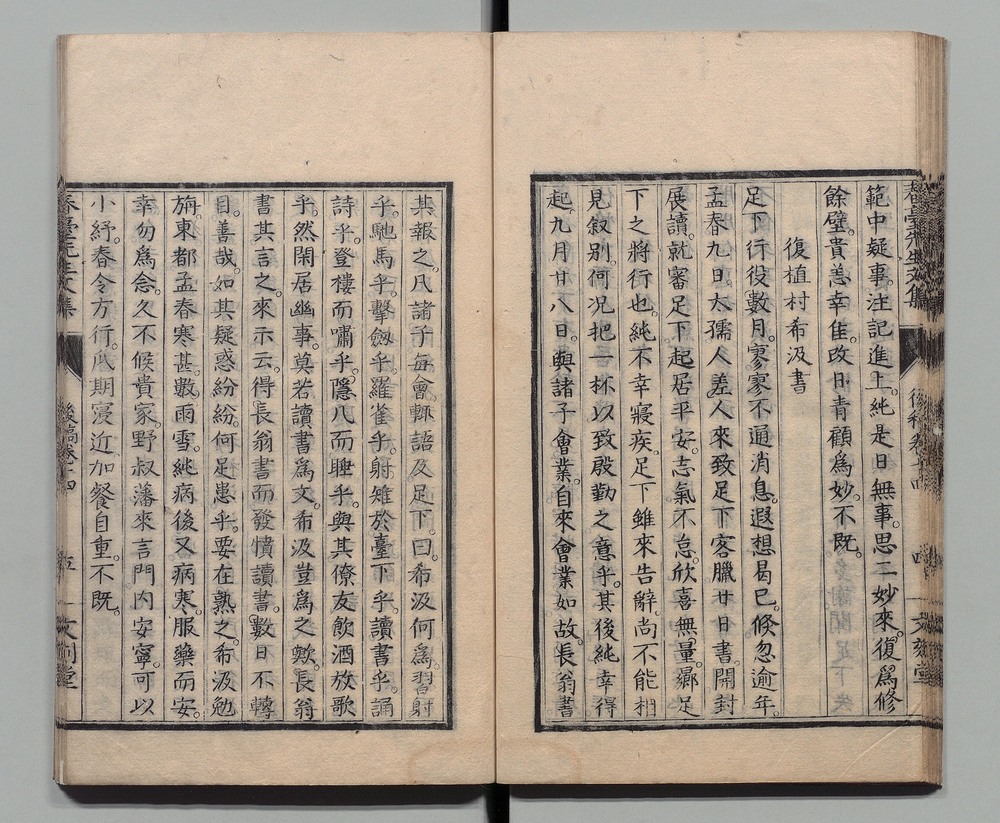 範中疑事。注記進上。純是日無事。思二妙來。復爲修
餘璧。貴恙幸佳。改日青顧爲妙。不既。
復植村希汲書
足下行役數月。寥寥不通消息。遐想曷已。倏忽逾年。
孟春九日。太孺人差人來。致足下客臘廿日書。開封
展讀。就審足下起居平安。志氣不怠。欣喜無量。曏足
下之將行也。純不幸寢疾。足下雖來告辭。尚不能相
見敘別。何況把一杯以致殷勤之意乎。其後純幸得
起。九月廿八日。與諸子會業。自來會業如故。長翁書
春臺先生文集
後稿卷十四
四
其報之。凡諸子每會。輒語及足下。曰。希汲何爲。習射
乎。馳馬乎。擊劔乎。羅雀乎。射雉於臺下乎。讀書乎。誦
詩乎。登樓而嘯乎。隱几而睡乎。與其僚友飲酒放歌
乎。然閑居幽事。莫若讀書爲文。希汲豈爲之歟。長翁
書其言之。來示云。得長翁書而發憤讀書。數日不轉
目。善哉。如其疑惑紛紛。何足患乎。要在熟之。希汲勉
旃。東都孟春寒甚。數雨雪。純病後又病寒。服藥而安。
幸勿爲念。久不候貴家。野叔藩來言門内安寧。可以
小紓。春令方行。瓜期寖近。加餐自重。不既。
春臺先生文集
後稿卷十四
五